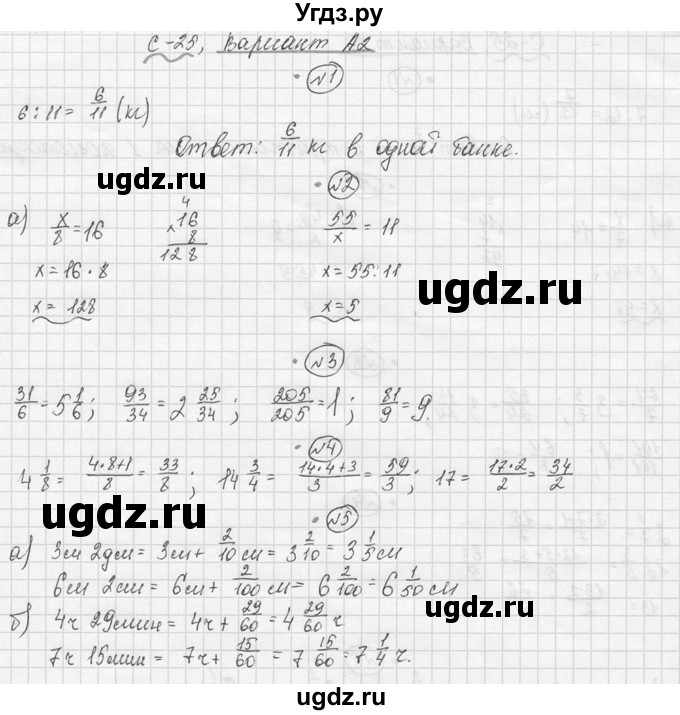 Угдз.ру
С-25, Вариант А2
№1
6 : 11 = 6/11 (кг)
Ответ: 6/11 кг в одной банке.
ugdz.ru ugdz.ru
№2
а) x/8 = 16 4 16 × 8 128 55/x = 11
x = 16 · 8 x = 55 : 11
ugdz.ru
x = 128 x = 5
№3
31/6 = 5 1/6; 93/34 = 2 25/34; 205/205 = 1; 81/9 = 9.
№4
4 1/8 = (4·8+1)/8 = 33/8; 14 3/4 = (14·4+3)/3 = 59/3; 17 = (17·2)/2 = 34/2
ugdz.ru ugdz.ru
№5
а) 3м 2дм = 3м + 2/10 м = 3 2/10 = 3 1/5 м
6м 2см = 6м + 2/100 м = 6 2/100 = 6 1/50 м
б) 4ч 29мин = 4ч + 29/60 = 4 29/60 ч
7ч 15мин = 7ч + 15/60 = 7 15/60 = 7 1/4 ч.
ugdz.ru ugdz.ru
ugdz.ru